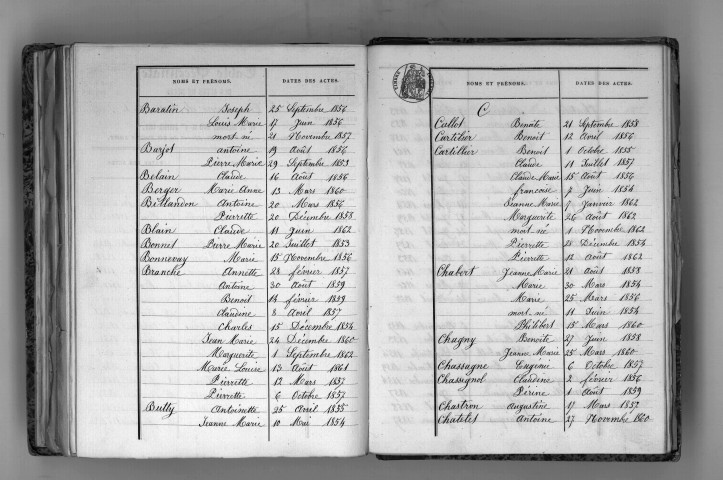 NOMS ET PRÉNOMS. DATES DES ACTES.
Baratin Joseph 25 Septembre 1856
Louis Marie 17 Juin 1856
mort né 21 Novembre 1857
Barjot antoine 19 Août 1856
Pierre Marie 29 Septembre 1853
Belain Claude 16 Août 1856
Berger Marie Anne 13 Mars 1860
Billandon Antoine 20 Mars 1856
Pierrette 20 Décembre 1858
Blain Claude 11 Juin 1862
Bonnet Pierre Marie 20 Juillet 1853
Bonnevay Marie 15 Novembre 1856
Branche Annette 28 février 1857
Antoine 30 Août 1859
Benoit 14 février 1859
Claudine 8 Avril 1857
Charles 15 Décembre 1854
Jean Marie 24 Décembre 1860
Marguerite 1 Septembre 1862
Marie Louise 13 Août 1861
Pierrette 12 Mars 1857
Pierrette 6 Octobre 1857
Bully Antoinette 25 Avril 1855
Jeanne Marie 10 Mai 1854
NOMS ET PRÉNOMS. DATES DES ACTES.
C
Callot Benoite 21 Septembre 1858
Cartilier Benoit 12 Avril 1856
Cartillier Benoit 1 Octobre 1855
Claude 18 Juillet 1857
Claude Marie 15 Août 1856
francoise 7 Juin 1854
Jeanne Marie 7 Janvier 1862
Marguerite 26 Août 1862
mort né 1 Novembre 1862
Pierrette 28 Décembre 1854
Pierrette 12 Août 1862
Chabert Jeanne Marie 21 Août 1858
Marie 30 Mars 1854
Marie 25 Mars 1856
mort né 11 Juin 1854
Philibert 15 Mars 1860
Chagny Benoite 27 Juin 1858
Jeanne Marie 25 Mars 1860
Chassagne Eugénie 6 Octobre 1857
Chassignol Claudine 2 février 1856
Périne 1 Août 1859
Chastron Augustine 17 Mars 1857
Chatelet Antoine 27 Novembre 1860